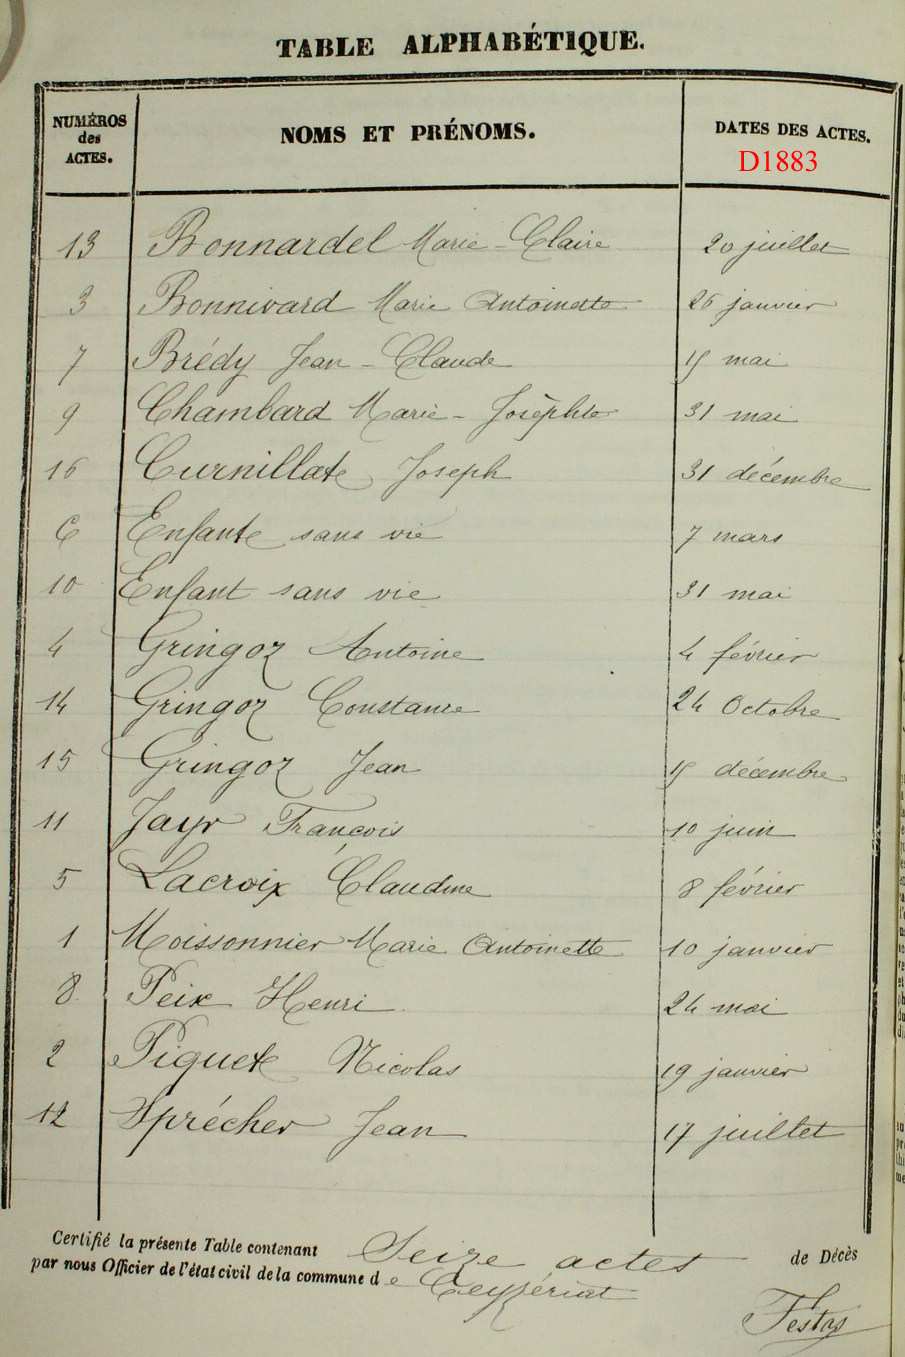 TABLE ALPHABÉTIQUE.
NUMÉROS des ACTES. NOMS ET PRÉNOMS. DATES DES ACTES.
D1883
13 Bonnardel Marie-Claire 20 juillet
3 Bonnivard Marie Antoinette 26 janvier
7 Brédy Jean-Claude 15 mai
9 Chambard Marie-Josèphte 31 mai
16 Curnillate Joseph 31 décembre
6 Enfante sans vie 7 mars
10 Enfant sans vie 31 mai
4 Gringoz Antoine 4 février
14 Gringoz Constance 24 Octobre
15 Gringoz Jean 15 décembre
11 Jayr François 10 juin
5 Lacroix Claudine 8 février
1 Moissonnier Marie Antoinette 10 janvier
8 Peix Henri 24 mai
2 Piquet Nicolas 19 janvier
12 Sprécher Jean 17 juillet
Certifié la présente Table contenant Seize actes de Décès
par nous Officier de l'état civil de la commune de Ceyzériat
Festas